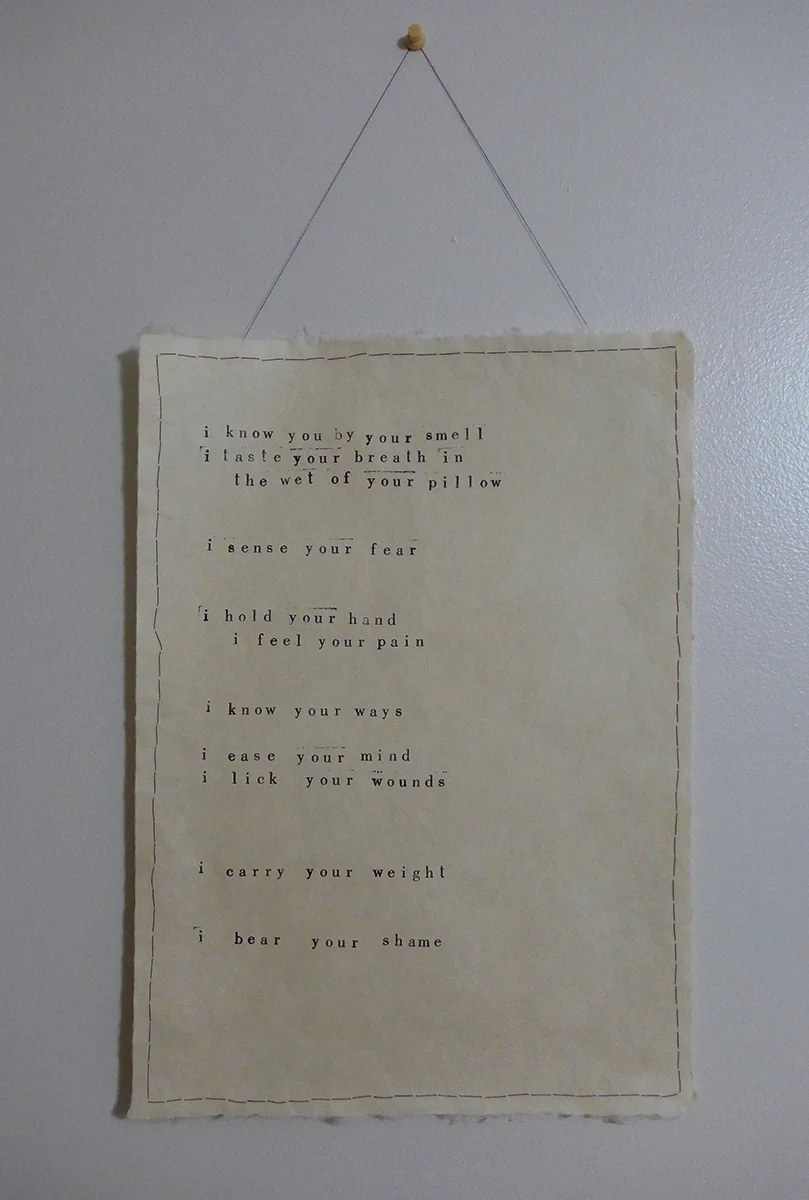 i know you by your smell
i taste your breath in
the wet of your pillow
i sense your fear
i hold your hand
i feel your pain
i know your ways
i ease your mind
i lick your wounds
i carry your weight
i bear your shame